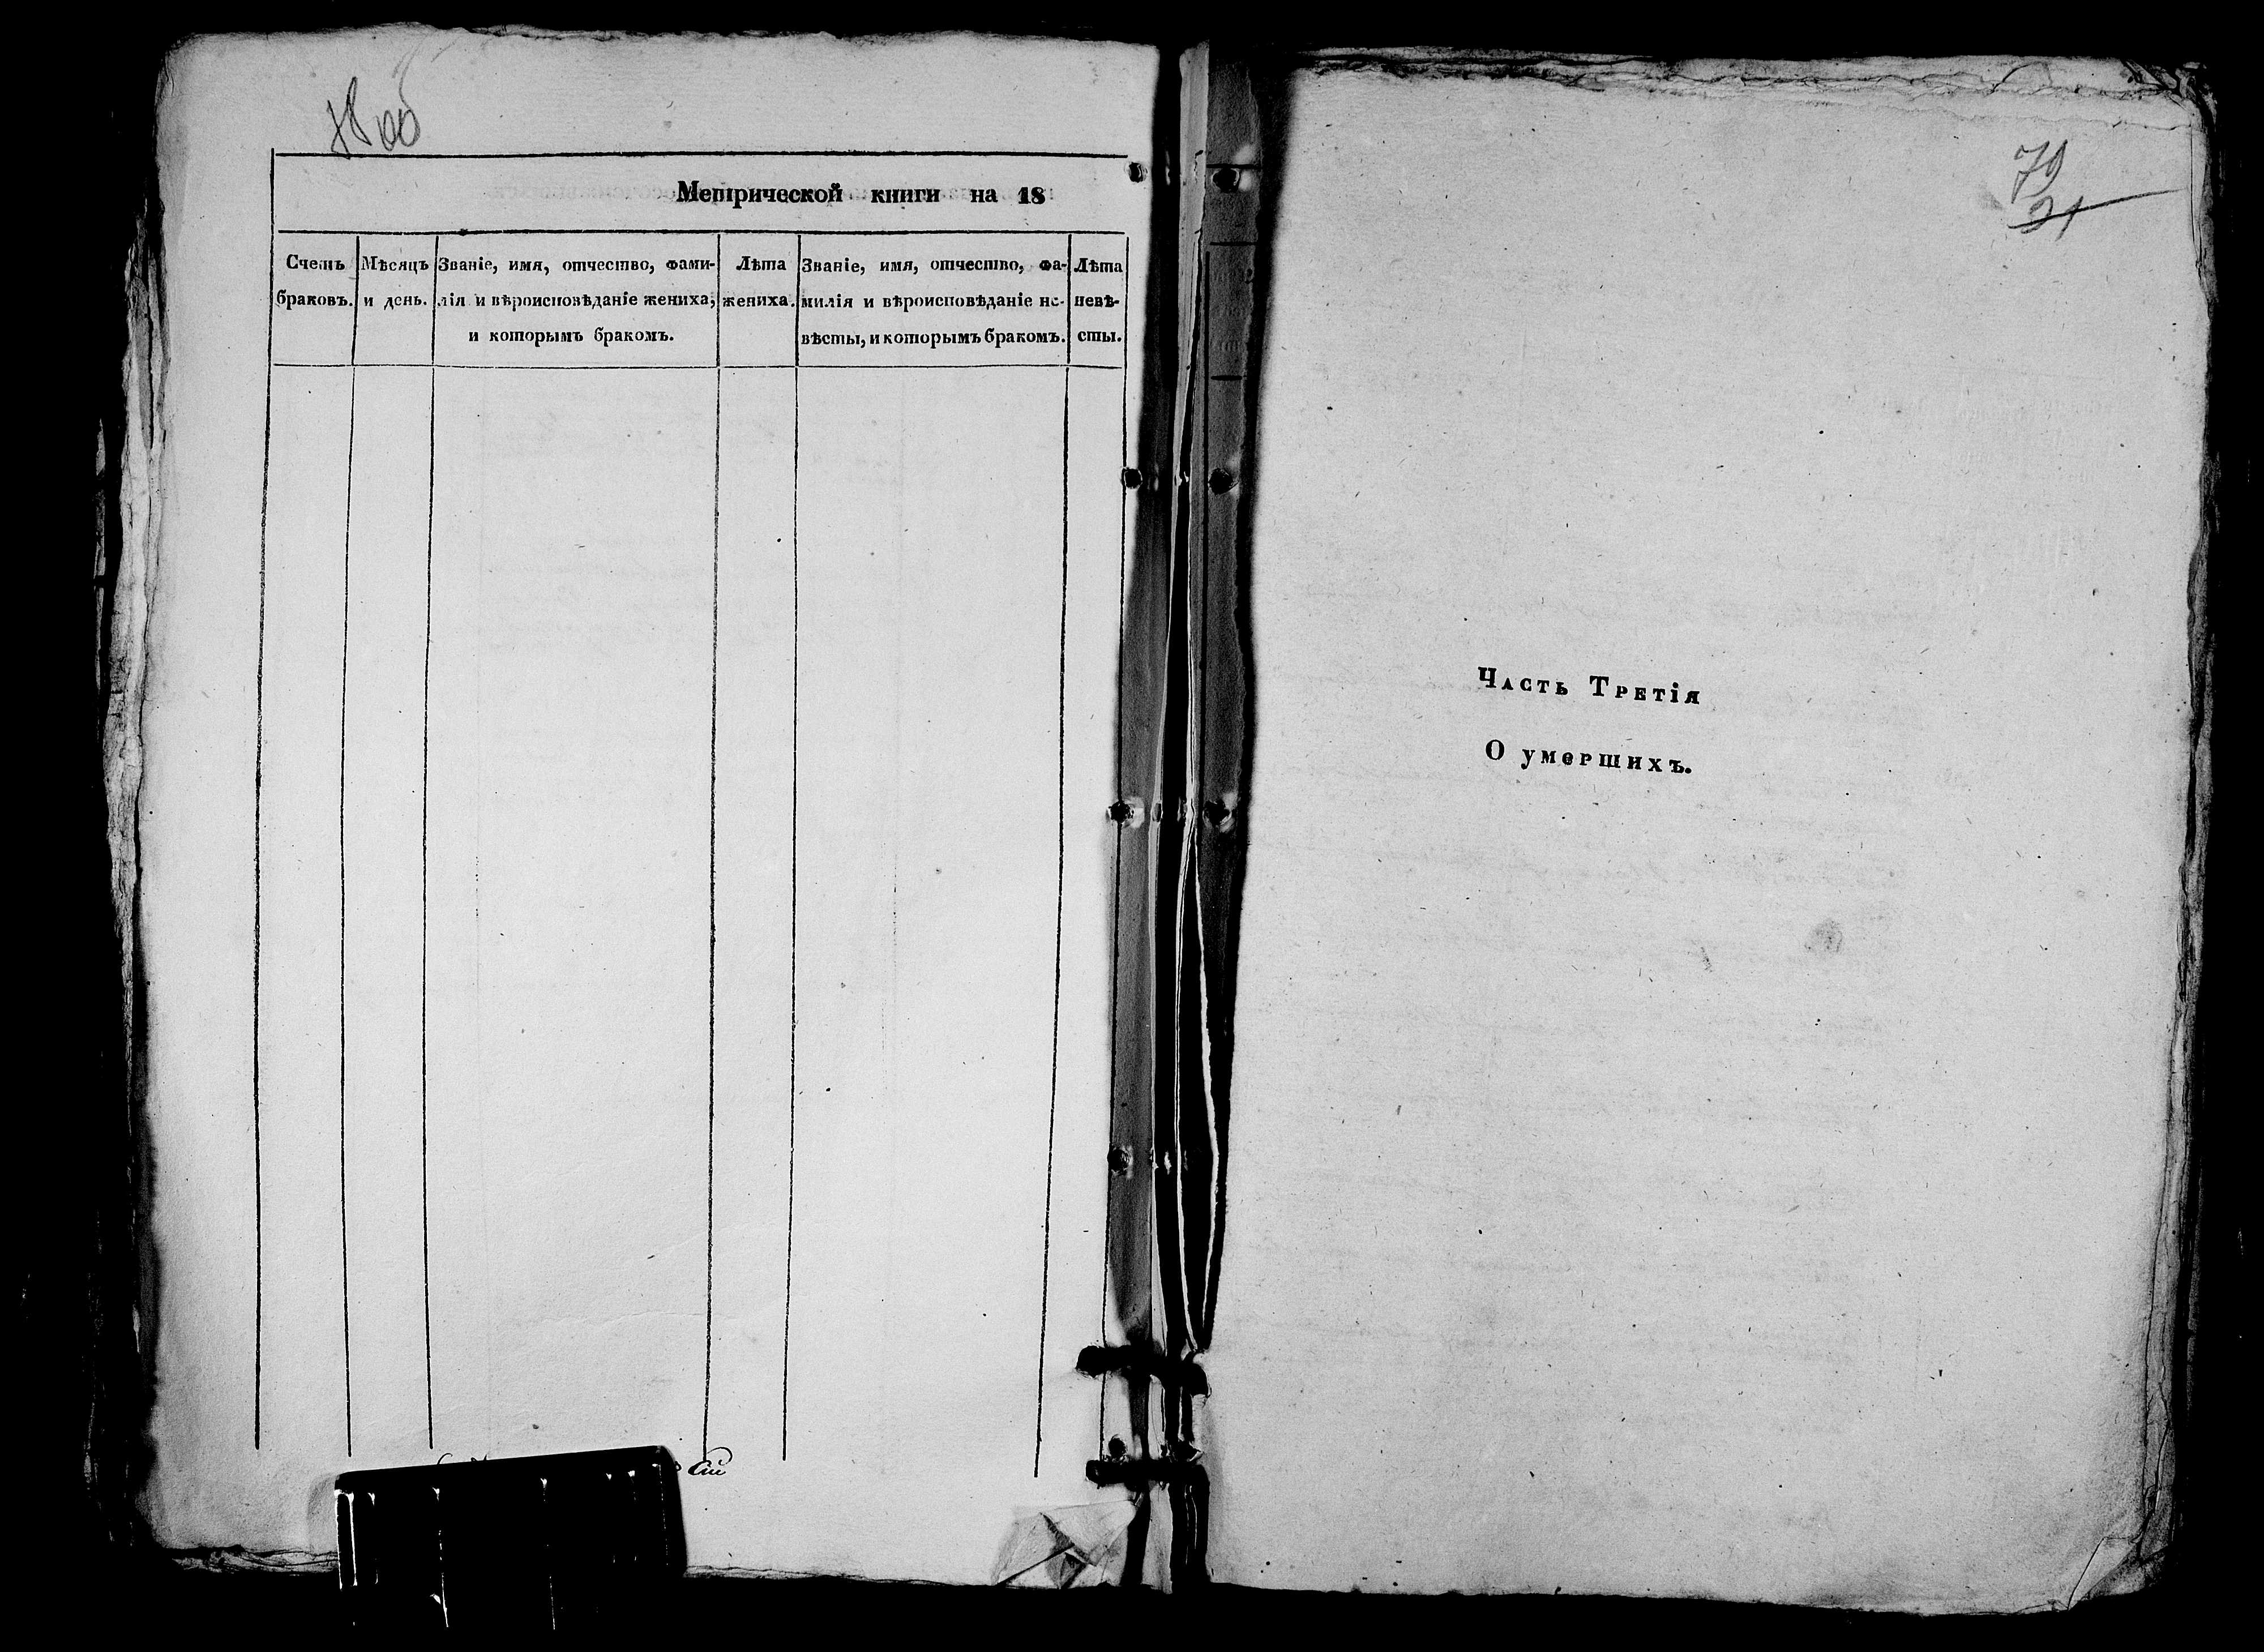 78 об
Метрической книги на 18
Счетъ браковъ.
Мѣсяцъ и день.
Званіе, имя, отчество, фами-
лія и вѣроисповѣданіе жениха,
и которымъ бракомъ.
Лѣта
жениха.
Званіе, имя, отчество, фа-
милія и вѣроисповѣданіе не-
вѣсты, и которымъ бракомъ.
Лѣта
невѣ-
сты.
79
21
Часть Третія
О умершихъ.